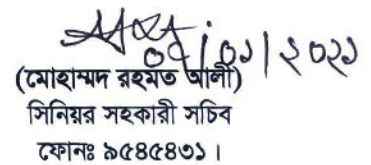 ০৫/০১/২০২১
(মোহাম্মদ রহমত আলী)
সিনিয়র সহকারী সচিব
ফোনঃ ৯৫৪৫৪৩১।